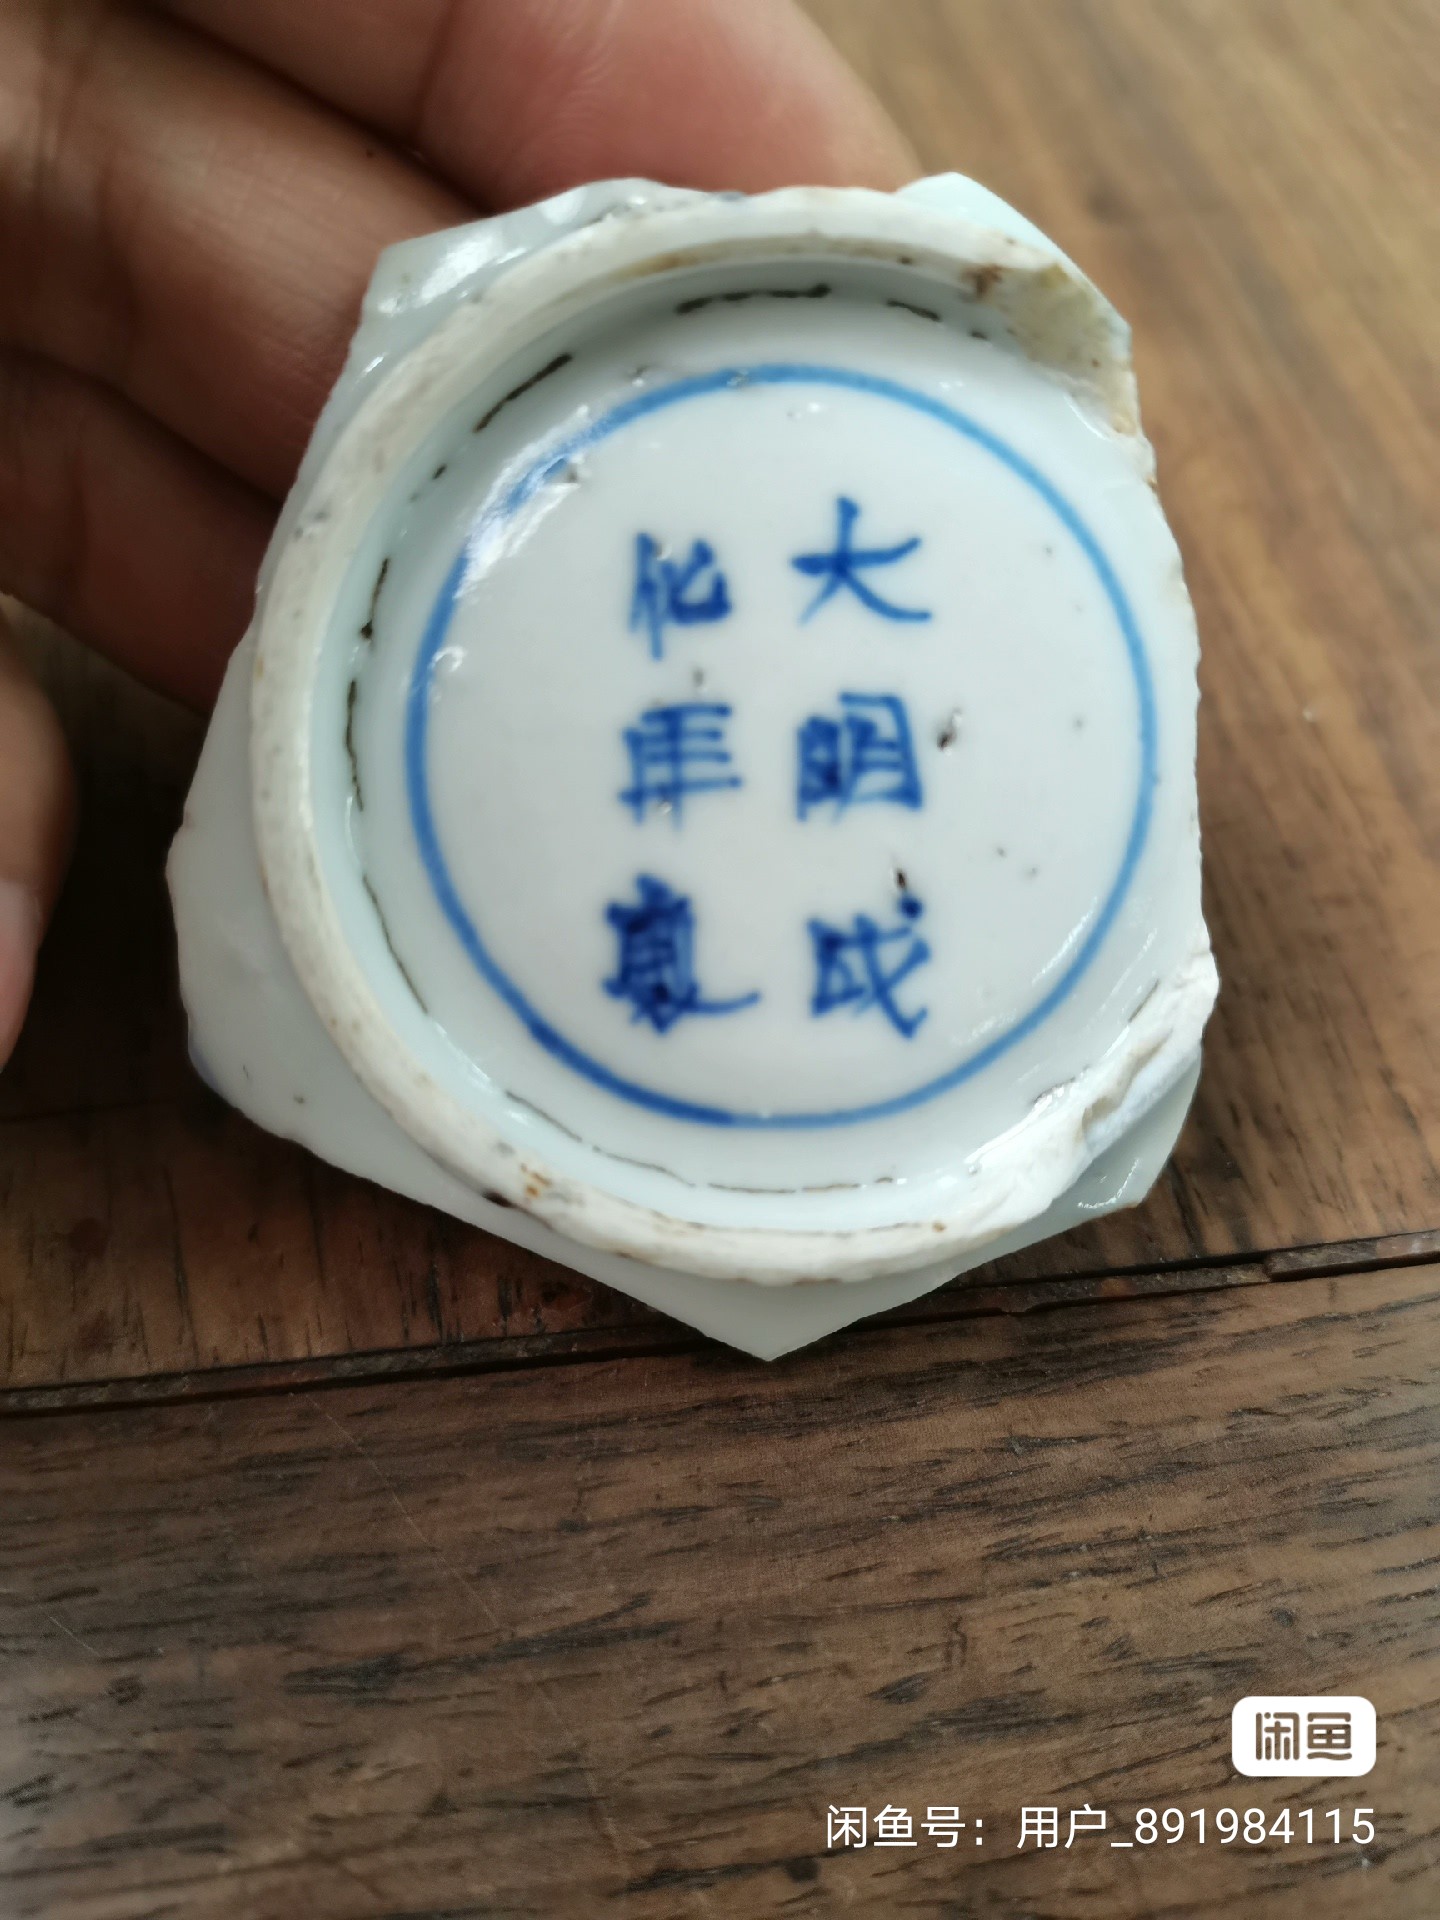 大明成
化年製
闲鱼
闲鱼号：用户_891984115